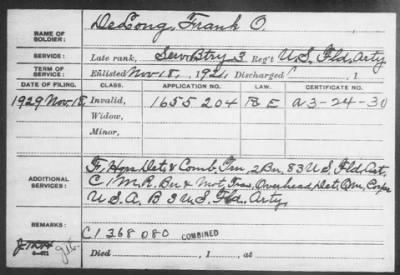 NAME OF SOLDIER: DeLong, Frank O.
SERVICE: Late rank, Serv Btry 3 Reg't U.S. Fld. Arty
TERM OF SERVICE: Enlisted Nov 18, 1921, Discharged , 1
DATE OF FILING. CLASS. APPLICATION NO. LAW. CERTIFICATE NO.
1929 Nov. 18 Invalid, 1655204 a3-24-30
Widow,
Minor,
ADDITIONAL SERVICES: Hqrs Det. & Comb Trn, 2 Bn, 83 U.S. Fld. Art,
C, M.R. Bn & Mot. Overhead Det, Qm Corps
U.S.A. B 3 U.S. Fld. Arty.
REMARKS: C1268080 COMBINED
Died , 1 , at